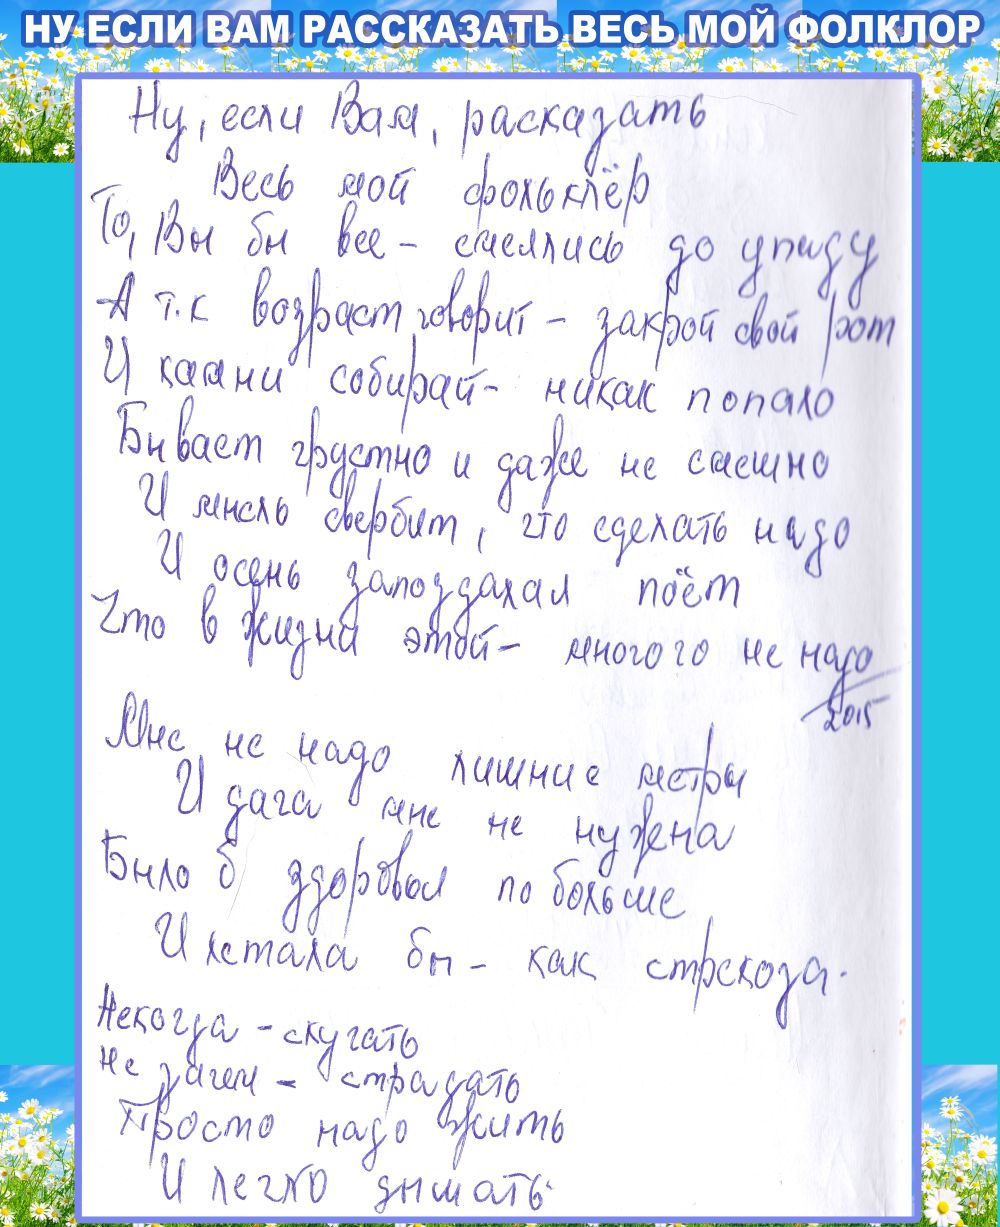 НУ ЕСЛИ ВАМ РАССКАЗАТЬ ВЕСЬ МОЙ ФОЛКЛОР
Ну, если Вам, расказать
Весь мой фольклёр
То, Вы бы все - смеялись до упаду
А т.к возраст говорит - закрой свой рот
И камни собирай - никак попало
Бывает грустно и даже не смешно
И мысль свербит, что сделать надо
И осень запоздалая поёт
Что в жизни этой - многого не надо
2015
Мне не надо лишние метры
И дача мне не нужена
Было б здоровья по больше
И летала бы - как стрекоза.
Некогда - скучать
Не зачем - страдать
Просто надо жить
И легко дышать.